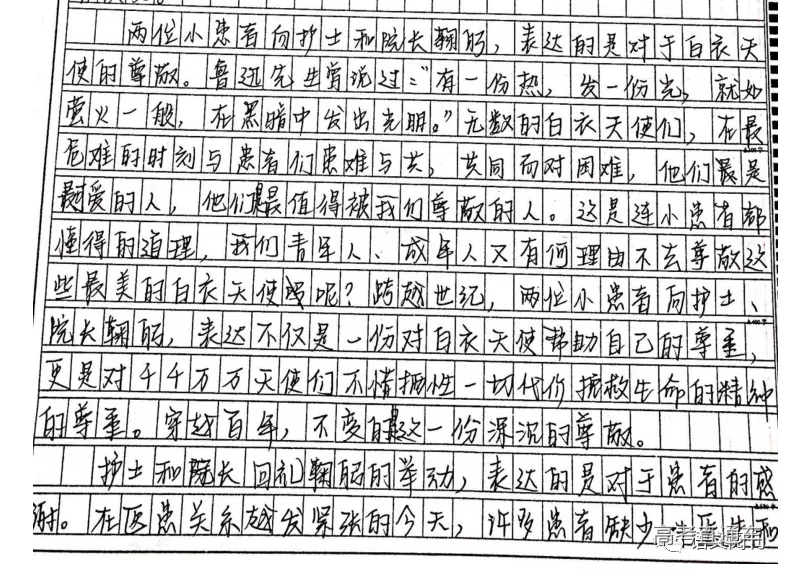 两位小患者向护士和院长鞠躬，表达的是对于白衣天
使的尊敬。鲁迅先生曾说过："有一份热，发一份光，就如
萤火一般，在黑暗中发出光明。"无数的白衣天使们，在最
危难的时刻与患者们患难与共，共同面对困难，他们最是
可爱的人，他们是最值得被我们尊敬的人。这是连小患者都
懂得的道理，我们青年人、成年人又有何理由不去尊敬这
些最美的白衣天使呢？跨越世纪，两位小患者向护士、
院长鞠躬，表达不仅是一份对白衣天使帮助自己的尊重，
更是对千千万万天使们不惜牺牲一切代价拯救生命的精神
的尊重。穿越百年，不变的是这一份深沉的尊敬。
护士和院长回礼鞠躬的举动，表达的是对于患者的感
谢。在医患关系越发紧张的今天，许多患者缺少
高考直通车